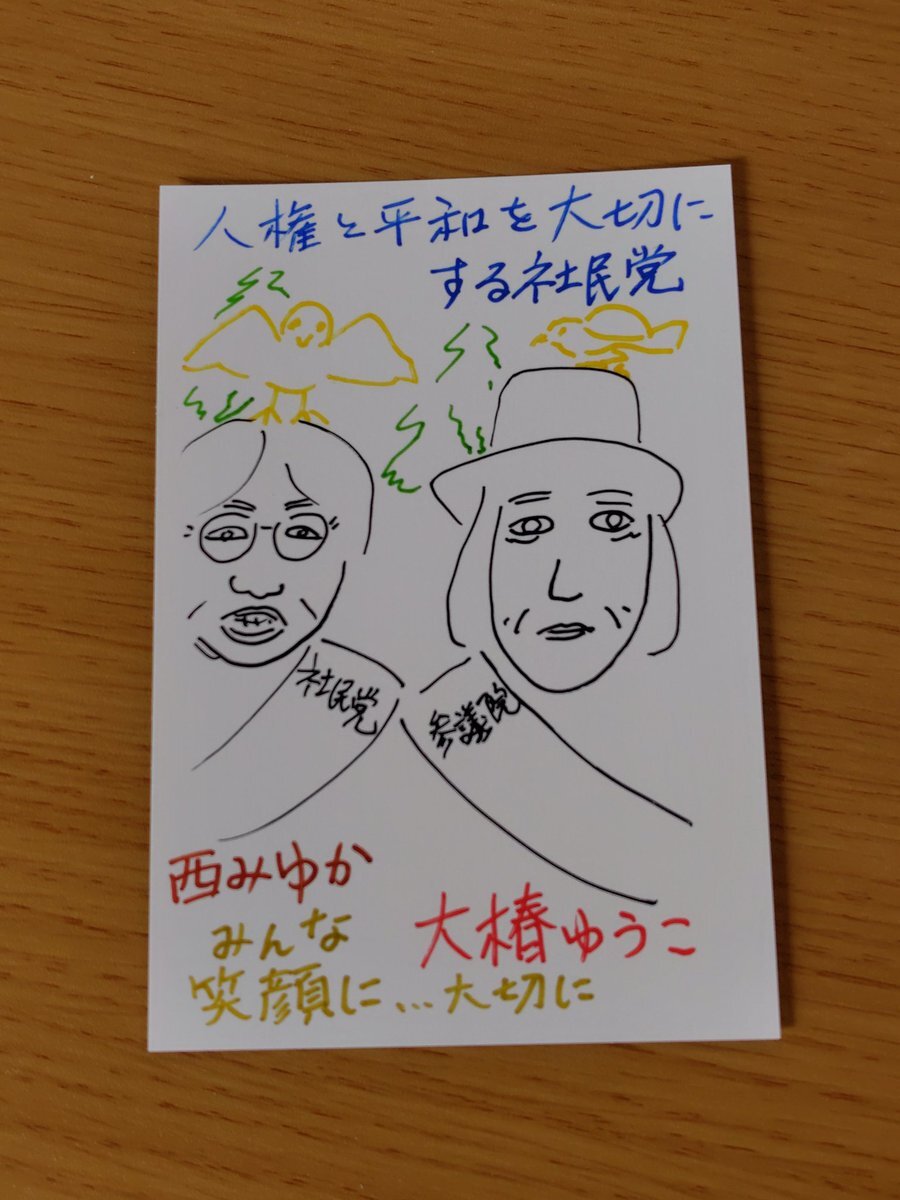 人権と平和を大切に
する社民党
社民党
参議院
西みゆか
大椿ゆうこ
みんな
笑顔に...大切に